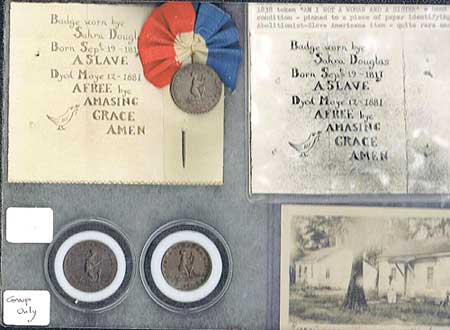 Badge worn bye
Sahra Douglas
Born Sept 19-18
A SLAVE
Dyed Maye 12-1881
A FREE bye
AMASING
GRACE
AMEN
1838 token "AM I NOT A WOMAN AND A SISTER"
condition - pinned to a piece of paper identifying
Abolitionist-Slave Americana item - quite rare
Badge worn bye
Sahra Douglas
Born Sept 19-18
A SLAVE
Dyed Maye 12-1881
A FREE bye
AMASING
GRACE
AMEN
Group
Only